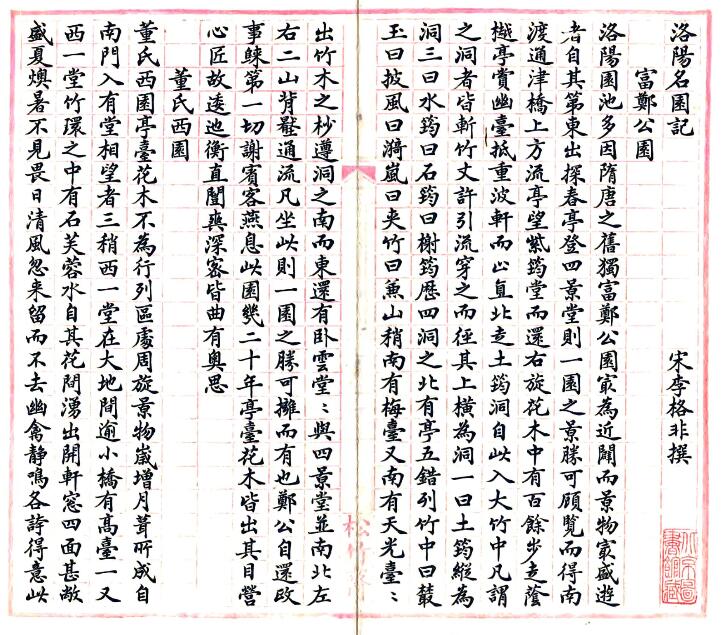 洛陽名園記 宋李格非撰
富鄭公園
洛陽園池多因隋唐之舊獨富鄭公園㝡為近闢而景物㝡盛遊
者自其第東出探春亭登四景堂則一園之景勝可顧覽而得南
渡通津橋上方流亭望紫筠堂而還右旋花木中有百餘步走蔭
樾亭賞幽臺抵重波軒而止直北走土筠洞自此入大竹中凡謂
之洞者皆斬竹丈許引流穿之而徑其上橫為洞一曰土筠縱為
洞三曰水筠曰石筠曰榭筠歷四洞之北有亭五錯列竹中曰叢
玉曰披風曰漪嵐曰夾竹曰兼山稍南有梅臺又南有天光臺〻
出竹木之杪遵洞之南而東還有卧雲堂〻與四景堂並南北左
右二山背壓通流凡坐此則一園之勝可擁而有也鄭公自還政
事歸第一切謝賓客燕息此園幾二十年亭臺花木皆出其目營
心匠故逶迤衡直闓爽深密皆曲有奧思
董氏西園
董氏西園亭臺花木不為行列區處周旋景物歲增月葺所成自
南門入有堂相望者三稍西一堂在大地間逾小橋有高臺一又
西一堂竹環之中有石芙蓉水自其花間湧出開軒窓四面甚敞
盛夏燠暑不見畏日清風忽来留而不去幽禽静鳴各誇得意此
松竹
北京圖書館藏